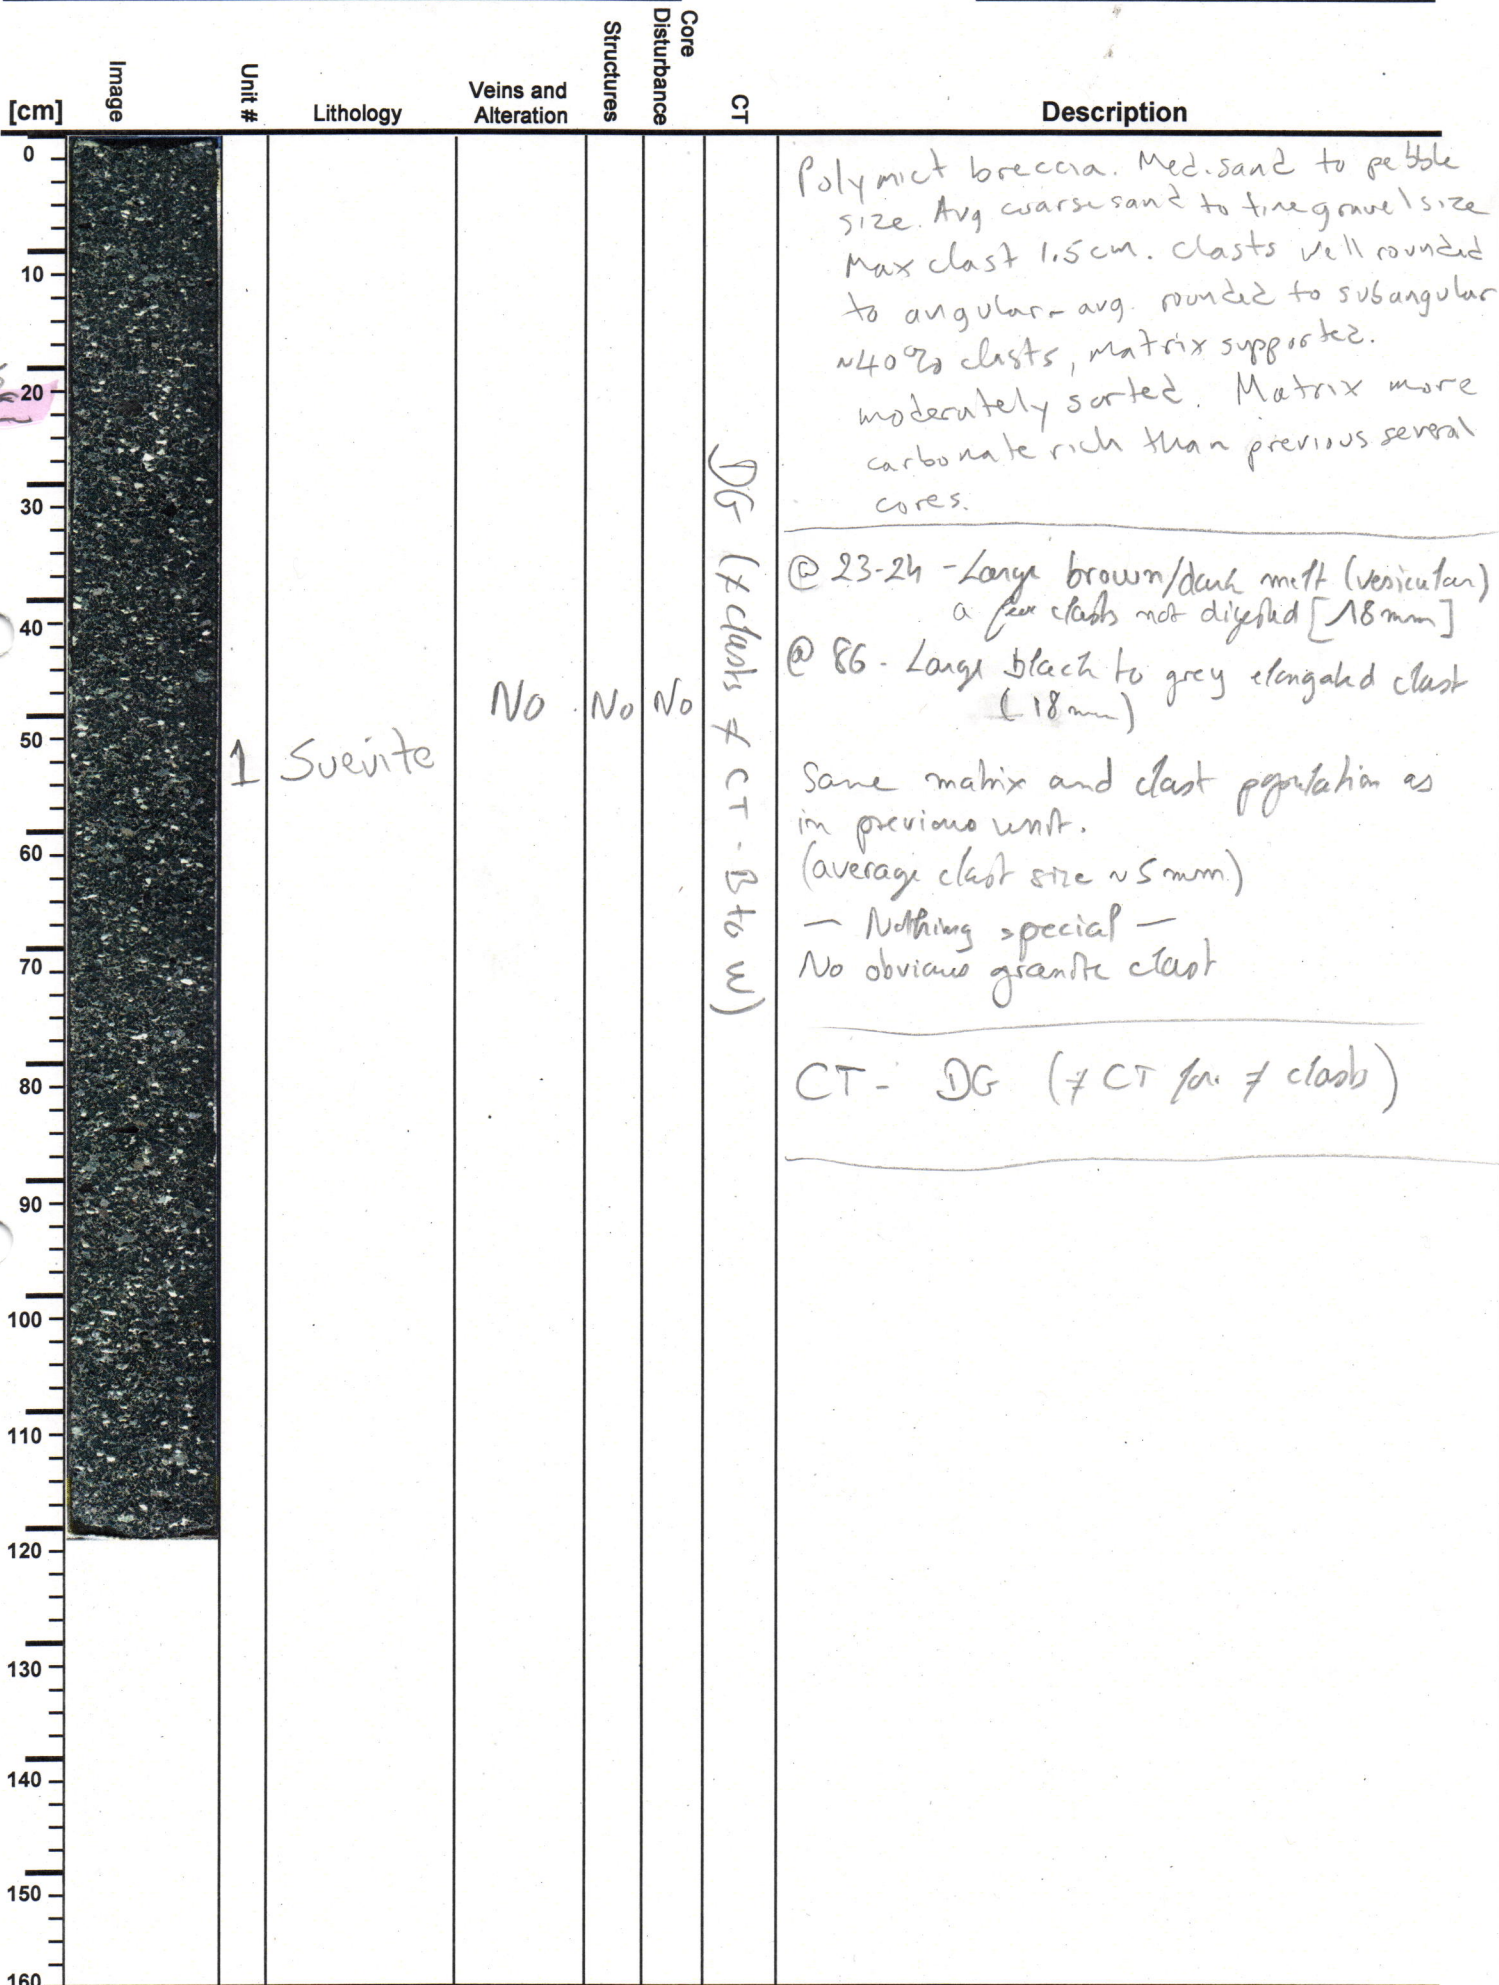 [cm]
Image
Unit #
Lithology
Veins and
Alteration
Structures
Core
Disturbance
CT
Description
0
10
20
30
40
50
60
70
80
90
100
110
120
130
140
150
160
1
Suevite
No
No
No
DG (≠ clasts ≠ CT - B to W)
Polymict breccia. Med. sand to pebble
size. Avg coarse sand to fine gravel size
Max clast 1.5 cm. Clasts well rounded
to angular - avg. rounded to subangular
~40% clasts, matrix supported.
moderately sorted. Matrix more
carbonate rich than previous several
cores.
@ 23-24 - Large brown/dark melt (vesicular)
a few clasts not digested [18 mm]
@ 86 - Large black to grey elongated clast
(18 mm)
Same matrix and clast population as
in previous unit.
(average clast size ~5 mm)
— Nothing special —
No obvious granite clast
CT - DG (≠ CT for ≠ clasts)